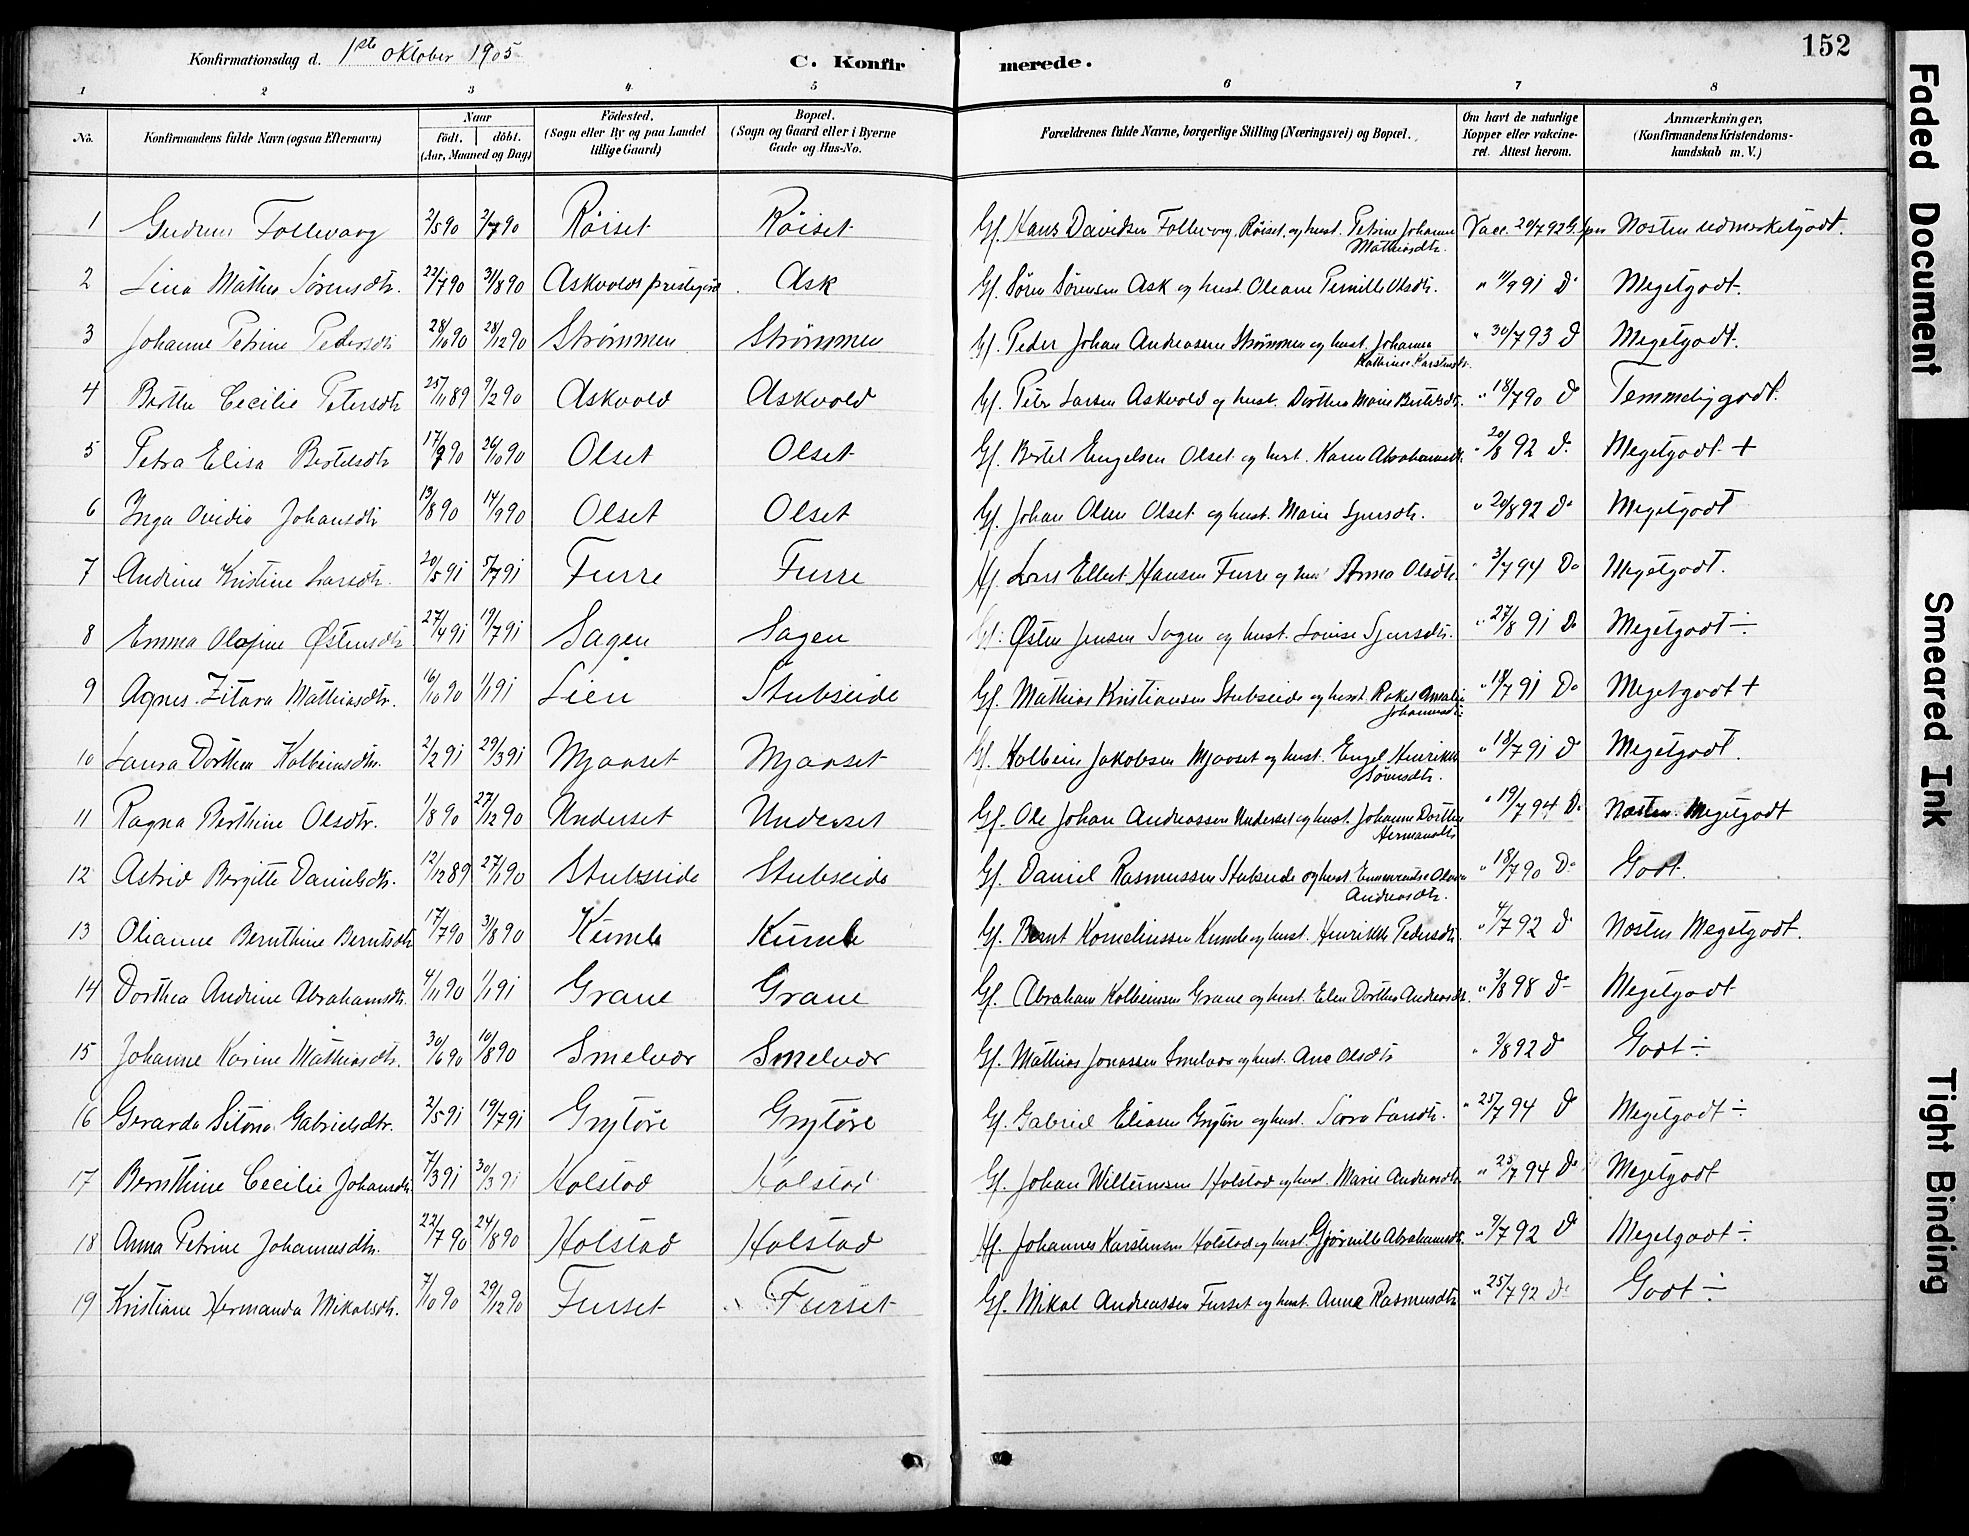 Konfirmationsdag d. 1ste oktober 1905
C. Konfirmerede.
152
1 2 3 4 5 6 7 8
No.
Konfirmandens fulde Navn (ogsaa Efternavn)
Naar
födt. döbt.
(Aar, Maaned og Dag)
Födested.
(Sogn eller By og paa Landet
tillige Gaard)
Bopæl.
(Sogn og Gaard eller i Byerne
Gade og Hus-No.
Forældrenes fulde Navne, borgerlige Stilling (Næringsvei) og Bopæl.
Om havt de naturlige
Kopper eller vakcine-
ret. Attest herom.
Anmærkninger,
(Konfirmandens Kristendoms-
kundskab m. V.)
1 Gudrun Follevaag 2/5 90 2/7 90 Röiset Röiset Gf. Hans Davidsen Follevaag, Röiset, og hust. Petrine Johanne Mathiasdtr. Vacc. 20/7 92 Næsten udmerketgodt.
2 Lina Mathea Sørensdtr. 22/7 90 31/8 90 Askvolds prestegård Ask Gf. Søren Sørensen Ask og hust. Oleane Pernille Olsdtr. " 11/9 91 Do Megetgodt.
3 Johanne Petrine Pedersdtr 28/10 90 28/12 90 Strømmen Strømmen Gf. Peder Johan Andreassen Strømmen og hust. Johanne Kathrine Karstensdtr. " 30/7 93 Do Megetgodt.
4 Berthe Cecilie Petersdtr 25/11 89 9/2 90 Askvold Askvold Gf. Peter Larsen Askvold og hust. Dorthea Marie Bertelsdtr. " 18/7 90 Do Temmeligodt.
5 Petra Elisa Bertelsdtr 17/9 90 26/10 90 Olset Olset Gf. Bertel Engelsen Olset og hust. Karen Abrahamsdtr. " 20/8 92 Do Megetgodt +
6 Inga Ovidia Johansdtr 13/8 90 14/9 90 Olset Olset Gf. Johan Olsen Olset og hust. Marie Sjursdtr. " 20/8 92 Do Megetgodt
7 Andrine Kristine Larsdtr. 20/5 91 5/7 91 Furre Furre Gf. Lars Ellert Hansen Furre og hust Anna Olsdtr. " 3/7 94 Do Megetgodt.
8 Emma Olofine Østensdtr 27/4 91 19/7 91 Sagen Sagen Gf. Østen Jensen Sagen og hust. Lovise Sjursdtr. " 27/8 91 Do Megetgodt ÷
9 Agnes Zitara Mathiasdtr. 16/10 90 1/1 91 Lien Stubseide Gf. Mathias Kristiansen Stubseide og hust. Rakel Amalie Johannesdtr. " 14/7 91 Do Megetgodt +
10 Laura Dorthea Kolbeinsdtr. 2/2 91 29/3 91 Mjaaset Mjaaset Gf. Kolbein Jakobsen Mjaaset og hust. Engel Henrikke Sørensdtr. " 18/7 91 Do Megetgodt.
11 Ragna Berthine Olsdtr. 1/8 90 27/12 90 Underset Underset Gf. Ole Johan Andreassen Underset og hust. Johanne Dorthea Hermansdtr " 19/7 94 Do Næsten Megetgodt
12 Astrid Bergitte Danielsdtr. 12/12 89 27/1 90 Stubseide Stubseide Gf. Daniel Rasmussen Stubseide og hust. Andreasdtr. " 18/7 90 Do Godt.
13 Olianne Bernthine Berntsdtr 17/7 90 31/8 90 Kumle Kumle Gf. Bernt Korneliussen Kumle og hust. Henrikke Pedersdtr. " 4/7 92 Do Næsten Megetgodt.
14 Dorthea Andrine Abrahamsdtr. 4/11 90 1/1 91 Grane Grane Gf. Abraham Kolbeinsen Grane og hust. Elen Dorthea Andreasdtr. " 3/8 98 Do Megetgodt
15 Johanne Karine Mathiasdtr. 30/6 90 10/8 90 Smelvær Smelvær Gf. Mathias Jonassen Smelvær og hust. Ane Olsdtr " 3/8 92 Do Godt ÷
16 Gerarda Sitona Gabrielsdtr. 2/5 91 19/7 91 Grytöre Grytöre Gf. Gabriel Eliasen Grytöre og hust. Sara Larsdtr. " 25/7 94 Do Megetgodt ÷
17 Bernthine Cecilie Johansdtr 7/3 91 30/3 91 Holstad Holstad Gf. Johan Willumsen Holstad og hust. Marie Andreasdtr " 25/7 94 Do Megetgodt
18 Anna Petrine Johannesdtr. 22/7 90 24/8 90 Holstad Holstad Gf. Johannes Karstensen Holstad og hust. Gjørnille Abrahamsdtr. " 9/7 92 Do Megetgodt ÷
19 Kristiane Hermanda Mikalsdtr. 7/10 90 29/12 90 Furset Furset Gf. Mikal Andreassen Furset og hust. Anna Rasmusdtr " 25/7 92 Do Godt ÷
Faded Document
Smeared Ink
Tight Binding